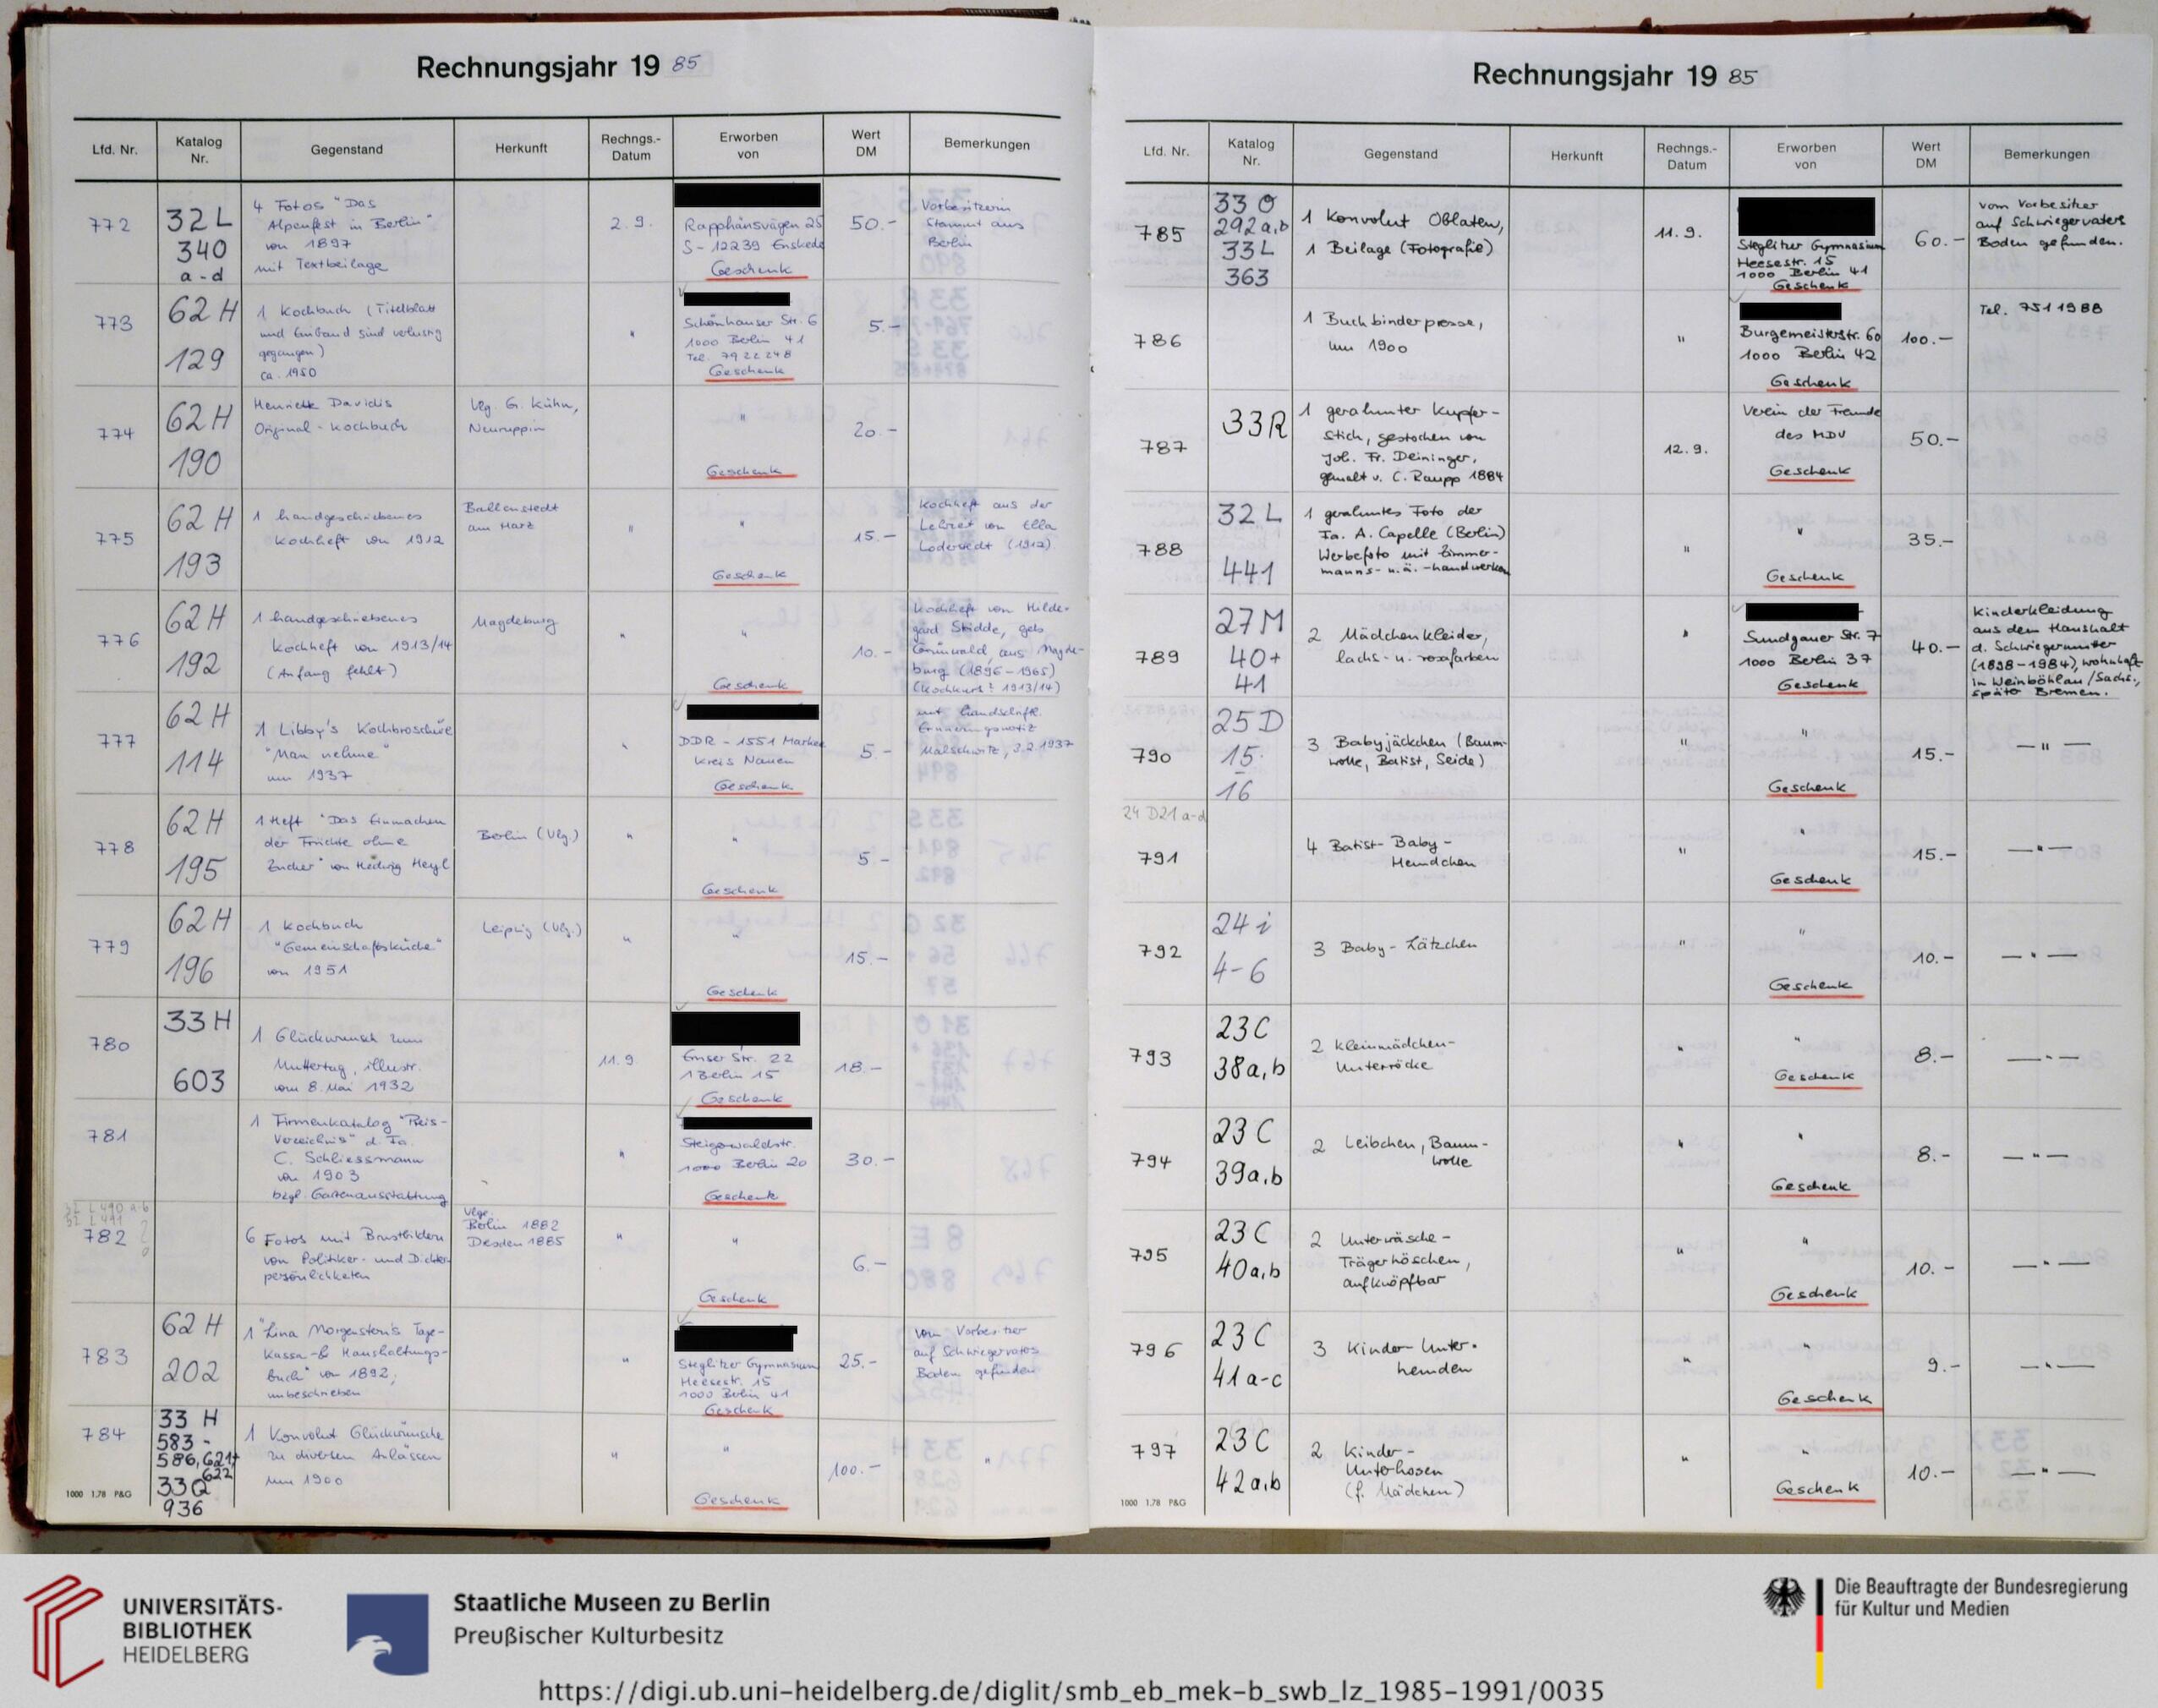 Rechnungsjahr 19 85
Lfd. Nr.
Katalog Nr.
Gegenstand
Herkunft
Rechngs.-Datum
Erworben von
Wert DM
Bemerkungen
772
32 L
340
a-d
4 Fotos "Das
Alpenfest in Berlin"
von 1897
mit Textbeilage
2.9.
Rapphönsvägen 25
S-12239 Enskede
Geschenk
50.-
Vorbesitzerin
stammt aus
Berlin
773
62 H
129
1 Kochbuch (Titelblatt
und Einband sind verlustig
gegangen)
ca. 1950
"
Schönhauser Str. 6
1000 Berlin 41
Tel. 7922248
Geschenk
5.-
774
62 H
190
Henriette Davidis
Original-Kochbuch
Vlg. G. Kühn,
Neuruppin
"
Geschenk
20.-
775
62 H
193
1 handgeschriebenes
Kochheft von 1912
Ballenstedt
am Harz
"
"
Geschenk
15.-
Kochheft aus der
Lehrzeit von Ella
Loderstedt (1912)
776
62 H
192
1 handgeschriebenes
Kochheft von 1913/14
(Anfang fehlt)
Magdeburg
"
"
Geschenk
10.-
Kochheft von Hilde-
gard Stidde, geb.
Grünwald aus Magde-
burg (1896-1965)
(Kochkurs? 1913/14)
777
62 H
114
1 Libby's Kochbroschüre
"Man nehme"
um 1937
"
DDR-1551 Markee
Kreis Nauen
Geschenk
5.-
mit handschriftl.
Erinnerungsnotiz
Malschwitz, 2.2.1937
778
62 H
195
1 Heft "Das Einmachen
der Früchte ohne
Zucker" von Hedwig Heyl
Berlin (Vlg.)
"
"
Geschenk
5.-
779
62 H
196
1 Kochbuch
"Gemeinschaftsküche"
von 1951
Leipzig (Vlg.)
"
"
Geschenk
15.-
780
33 H
603
1 Glückwunsch zum
Muttertag, illustr.
vom 8. Mai 1932
11.9
Emser Str. 22
1 Berlin 15
Geschenk
18.-
781
1 Firmenkatalog "Preis-
Verzeichnis" d. Fa.
C. Schliessmann
von 1903
bzgl. Gartenausstattung
"
Steigerwaldstr.
1000 Berlin 20
Geschenk
30.-
32 L 490 a-b
32 L 491
782
6 Fotos mit Brustbildern
von Politiker- und Dichter-
persönlichkeiten
Vlge.
Berlin 1882
Dresden 1885
"
"
Geschenk
6.-
783
62 H
202
1 "Lina Morgenstern's Tage-
Kassa-& Haushaltungs-
buch" von 1892,
unbeschrieben
"
Steglitzer Gymnasium
Heesestr. 15
1000 Berlin 41
Geschenk
25.-
vom Vorbesitzer
auf Schwiegervaters
Boden gefunden
784
33 H
583-
586, 621+
622
33 Q
936
1 Konvolut Glückwünsche
zu diversen Anlässen
um 1900
"
"
Geschenk
100.-
"
1000 1.78 P&G
Rechnungsjahr 19 85
Lfd. Nr.
Katalog Nr.
Gegenstand
Herkunft
Rechngs.-Datum
Erworben von
Wert DM
Bemerkungen
785
33 O
292 a,b
33 L
363
1 Konvolut Oblaten,
1 Beilage (Fotografie)
11.9.
Steglitzer Gymnasium
Heesestr. 15
1000 Berlin 41
Geschenk
60.-
vom Vorbesitzer
auf Schwiegervaters
Boden gefunden.
786
1 Buchbinderpresse,
um 1900
"
Burgemeisterstr. 60
1000 Berlin 42
Geschenk
100.-
Tel. 7511988
787
33 R
1 gerahmter Kupfer-
stich, gestochen von
Joh. Fr. Deininger,
gemalt v. C. Raupp 1884
12.9.
Verein der Freunde
des MDV
Geschenk
50.-
788
32 L
441
1 gerahmtes Foto der
Fa. A. Capelle (Berlin)
Werbefoto mit Zimmer-
manns- u.ä. -handwerken
"
"
Geschenk
35.-
789
27 M
40+
41
2 Mädchenkleider,
lachs- u. rosafarben
"
Sundgauer Str. 7
1000 Berlin 37
Geschenk
40.-
Kinderkleidung
aus dem Haushalt
d. Schwiegermutter
(1898-1984), wohnhaft
in Weinböhlau/Sachs.,
später Bremen.
790
25 D
15-
16
3 Babyjäckchen (Baum-
wolle, Batist, Seide)
"
"
Geschenk
15.-
—"—
24 D21 a-d
791
4 Batist-Baby-
Hemdchen
"
"
Geschenk
15.-
—"—
792
24 i
4-6
3 Baby-Lätzchen
"
"
Geschenk
10.-
—"—
793
23 C
38a,b
2 Kleinmädchen-
Unterröcke
"
"
Geschenk
8.-
—"—
794
23 C
39a,b
2 Leibchen, Baum-
wolle
"
"
Geschenk
8.-
—"—
795
23 C
40a,b
2 Unterwäsche-
Trägerhöschen,
aufknöpfbar
"
"
Geschenk
10.-
—"—
796
23 C
41a-c
3 Kinder-Unter-
hemden
"
"
Geschenk
9.-
—"—
797
23 C
42a,b
2 Kinder-
Unterhosen
(f. Mädchen)
"
"
Geschenk
10.-
—"—
1000 1.78 P&G
UNIVERSITÄTS-
BIBLIOTHEK
HEIDELBERG
Staatliche Museen zu Berlin
Preußischer Kulturbesitz
Die Beauftragte der Bundesregierung
für Kultur und Medien
https://digi.ub.uni-heidelberg.de/diglit/smb_eb_mek-b_swb_lz_1985-1991/0035